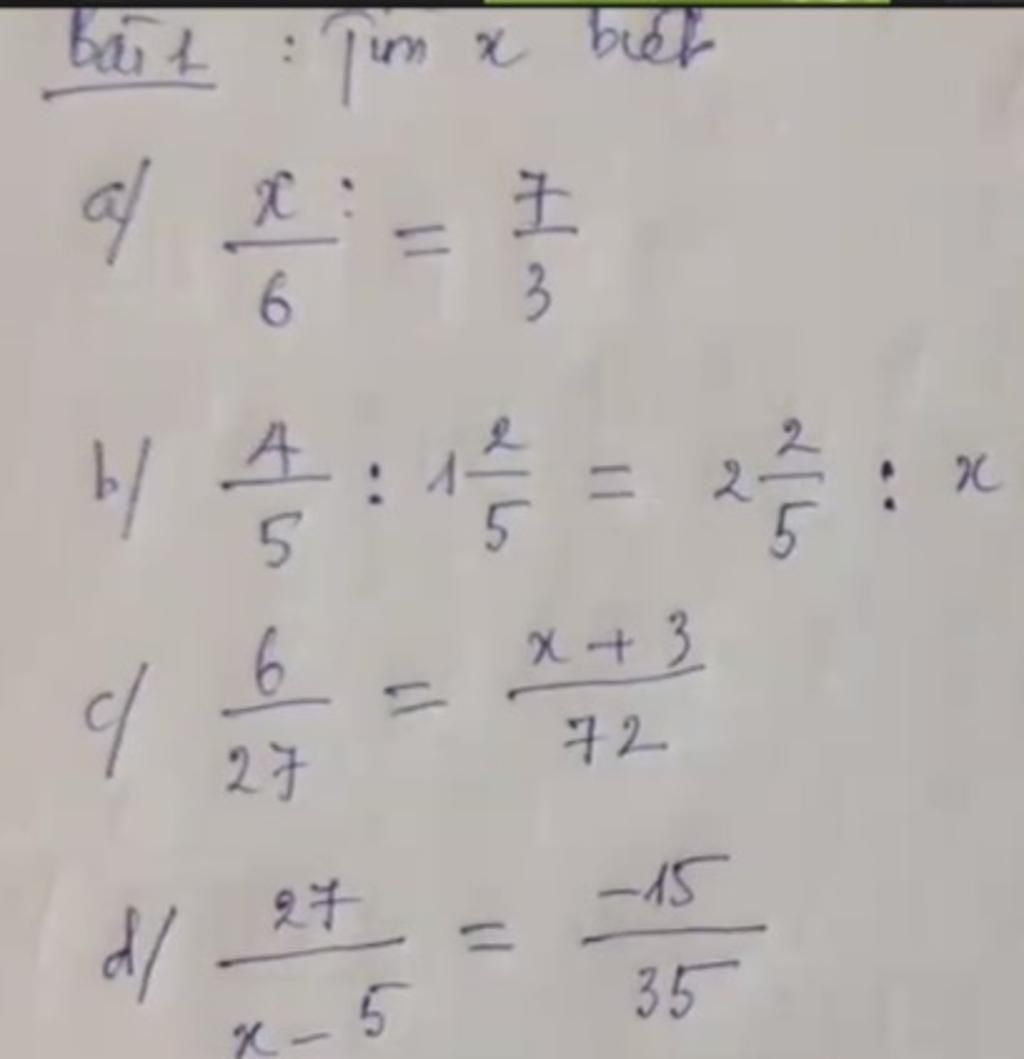 Bài 1 : Tìm x biết
a/ x/6 = 7/3
b/ 4/5 : 1 2/5 = 2 2/5 : x
c/ 6/27 = x + 3/72
d/ 27/x - 5 = -15/35